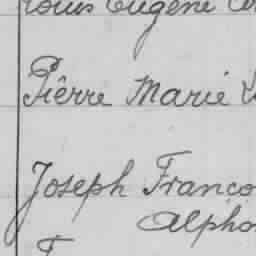 Louis Eugène
Pierre Marie L
Joseph Franço
Alpho
F